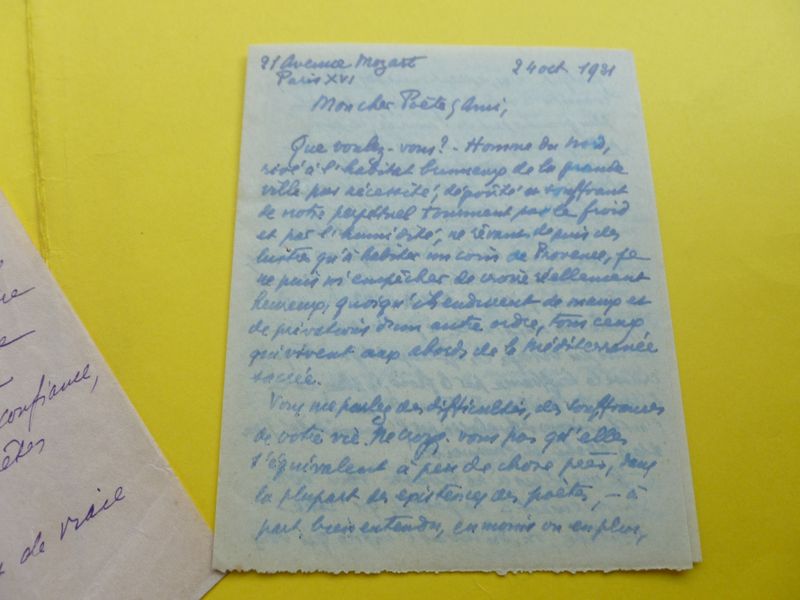 21 Avenue Mozart
Paris XVI
24 oct 1931
Mon cher Poète & Ami,
Que voulez-vous? - Homme du Nord,
rivé à l'habitat brumeux de la grande
ville par nécessité, dégoûté et souffrant
de notre perpétuel tourment par le froid
et par l'humidité, ne rêvant depuis des
lustres qu'à habiter un coin de Provence, je
ne puis m'empêcher de croire réellement
heureux, quoiqu'ils endurent de maux et
de privations d'un autre ordre, tous ceux
qui vivent aux abords de la Méditerranée
sacrée.
Vous me parlez des difficultés, des souffrances
de votre vie. Ne croyez-vous pas qu'elles
s'équivalent à peu de chose près, dans
la plupart des existences des poètes, - à
part bien entendu, en moins ou en plus,
confiance,
de vraie